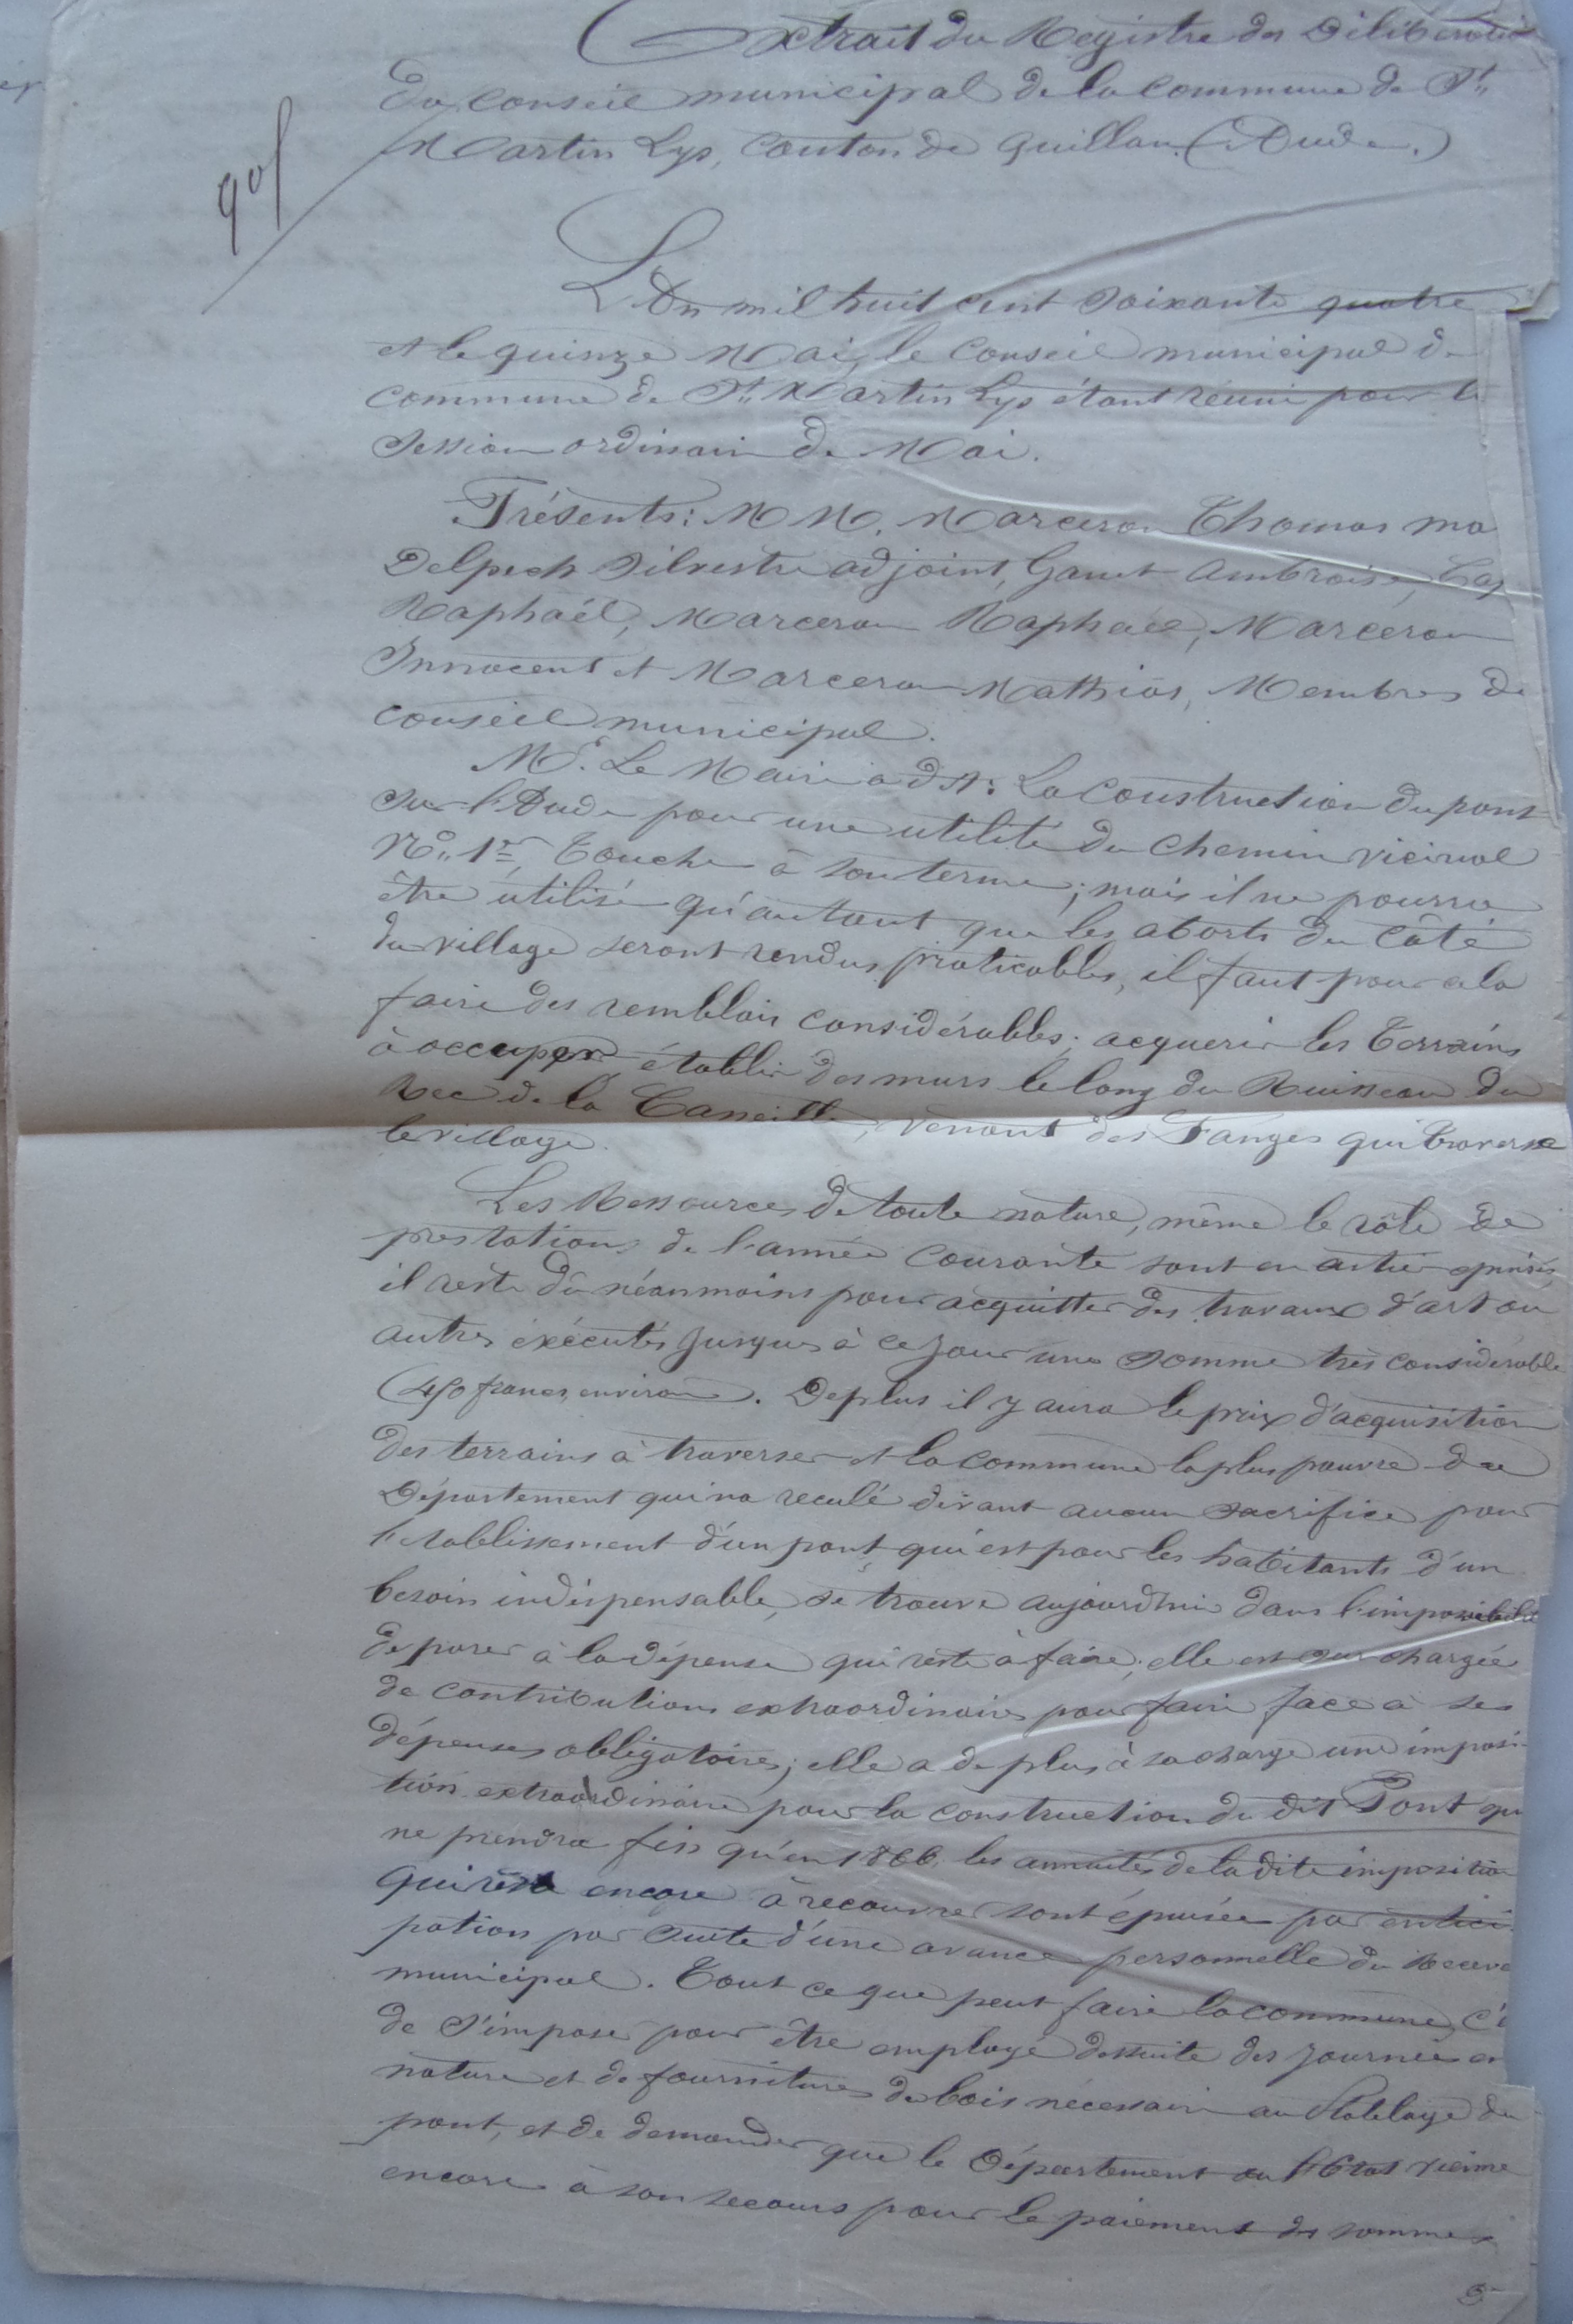 Extrait du Registre des Délibérations
Du conseil municipal de la commune de St
Martin Lys, Canton de Quillan (Aude.)
90f
L'An mil huit cent soixante quatre
et le quinze Mai, le conseil municipal de
commune de St Martin Lys étant réuni pour la
session ordinaire de Mai.
Présents: MM. Marceron Thomas ma
Delpech Silvestre adjoint, Ganet Ambroise,
Raphaël, Marceron Raphaël, Marceron
Innocent et Marceron Mathias, Membres du
conseil municipal.
Mr. Le Maire a dit: La construction du pont
sur l'Aude pour une utilité du chemin vicinal
No 1er, touche à son terme; mais il ne pourra
être utilisé qu'autant que les abords du côté
du village seront rendus praticables, il faut pour cela
faire des remblais considérables; acquerir les terrains
à occuper, établir des murs le long du Ruisseau du
Rec de la, venant des Fanges qui traverse
le village.
Les Ressources de toute nature, même le rôle de
prestations de l'année courante sont en entier épuisés,
il reste dû néanmoins pour acquitter des travaux d'art ou
autres éxécutés jusques à ce jour une somme très considérable
(450 francs environ). De plus il y aura le prix d'acquisition
des terrains à traverser et la commune la plus pauvre du
Département qui n'a reculé devant aucun sacrifice pour
l'etablissement d'un pont qui est pour les habitants d'un
besoin indispensable, se trouve aujourd'hui dans l'impossibilité
de parer à la dépense qui reste à faire; elle est surchargée
de contributions extraordinaires pour faire face à ses
dépenses obligatoires; elle a de plus à sa charge une imposi-
tion extraordinaire pour la construction du dit Pont qui
ne prendra fin qu'en 1866, les annuités de la dite imposition
qui reste encore à recouvrer sont épuisées par antici-
pation par suite d'une avance personnelle du Receve
municipal. Tout ce que peut faire la commune, c'e
de s'imposer pour être employé dessuite des journées en
nature et de fournitures de bois nécessaire au tablage du
pont, et de demander que le Département ou l'Etat vienne
encore à son secours pour le paiement des sommes